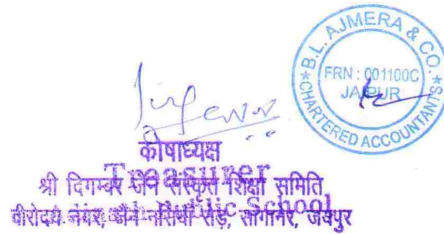 B.L. AJMERA & CO.
FRN : 001100C
JAIPUR
CHARTERED ACCOUNTANTS
कोषाध्यक्ष
Treasurer
श्री दिगम्बर जैन संस्कृत शिक्षा समिति
Public School
वीरोदय नगर, जैन नसियां रोड, सांगानेर, जयपुर